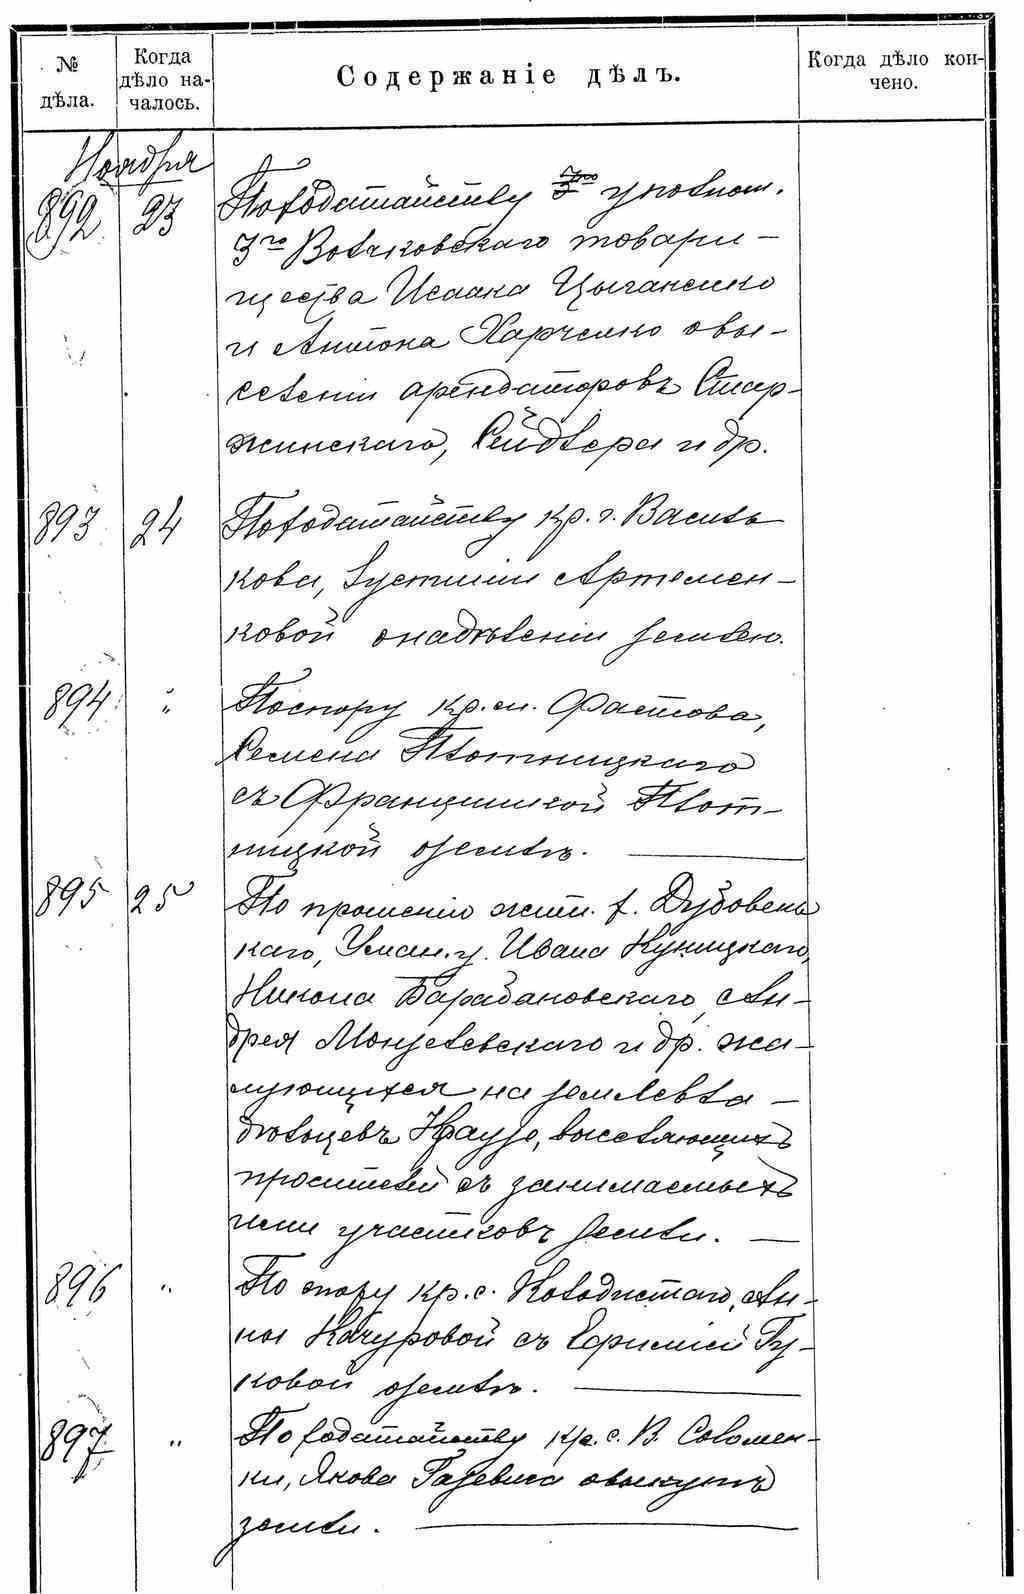 № дѣла.
Когда дѣло началось.
Содержаніе дѣлъ.
Когда дѣло кончено.
Ноября
892 23 По ходатайству уполном.
3го Волчковскаго товари-
щества Исаака Цыганенко
и Антона Харченко о вы-
селеніи арендаторовъ Стар-
жинскаго, Сейдлера и др.
893 24 По ходатайству кр. г. Василь
кова, Іустиніи Артемен-
ковой о надѣленіи землею.
894 " По спору кр. м. Фастова,
Семена Плотницкаго
съ Францишкой Плот-
ницкой о землѣ.
895 25 По прошенію жит. х. Дубовень
каго, Уман. у. Ивана Куницкаго,
Никона Барабановскаго, Ан-
дрея Монселевскаго и др. жа-
лующихся на землевла-
дѣльцевъ Краузе, выселяющихъ
просителей съ занимаемыхъ
ими участковъ земли.
896 " По спору кр. с. Колодистаго, Ан-
ны Качуровой съ Ефиміей Гу-
ковой о землѣ.
897 " По ходатайству кр. с. В. Соломен-
ки, Якова Газевича о выкупѣ
земли.